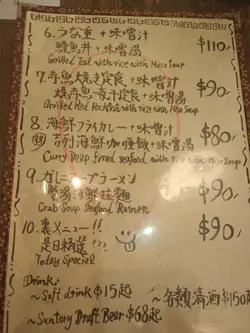 6. うな重 + 味噌汁
鰻魚丼 + 味噌湯
Grilled Eel with rice with Miso Soup
$110/-
7. 赤魚焼き定食 + 味噌汁
燒赤魚定食 + 味噌湯
Grilled Red Rockfish with rice with Miso Soup
$90/-
8. 海鮮フライカレー + 味噌汁
吉列海鮮咖喱飯 + 味噌湯
Curry Deep fried seafood with rice with Miso Soup
$80/-
9. カニスープラーメン
蟹湯海鮮拉麵
Crab Soup Seafood Ramen
$90/-
10. 裏メニュー!
是日精選???
Today Special
$90/-
Drink:
~ Soft drink $15起
~ 各類清酒 $150起
~ Suntory Draft Beer $68起